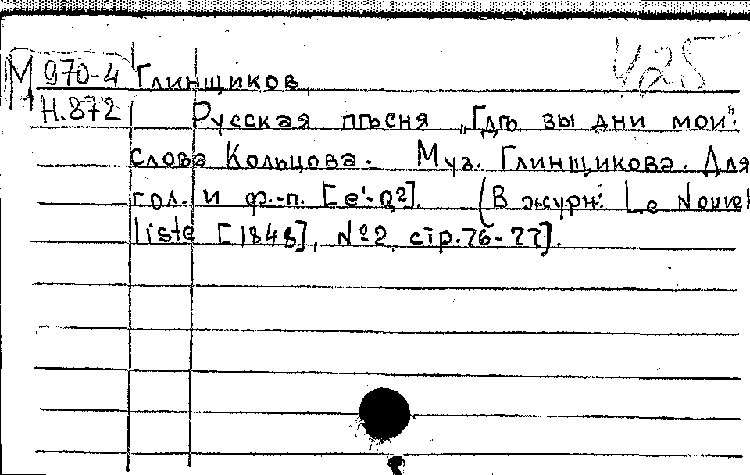 М 970-4 Глинщиков
Н.872 Русская пѣсня „Гдѣ вы дни мои".
Слова Кольцова. Муз. Глинщикова. Для
гол. и ф.-п. [e'-a2]. (В журн: Le Nouvel
liste [1848], №2, стр. 76-77].